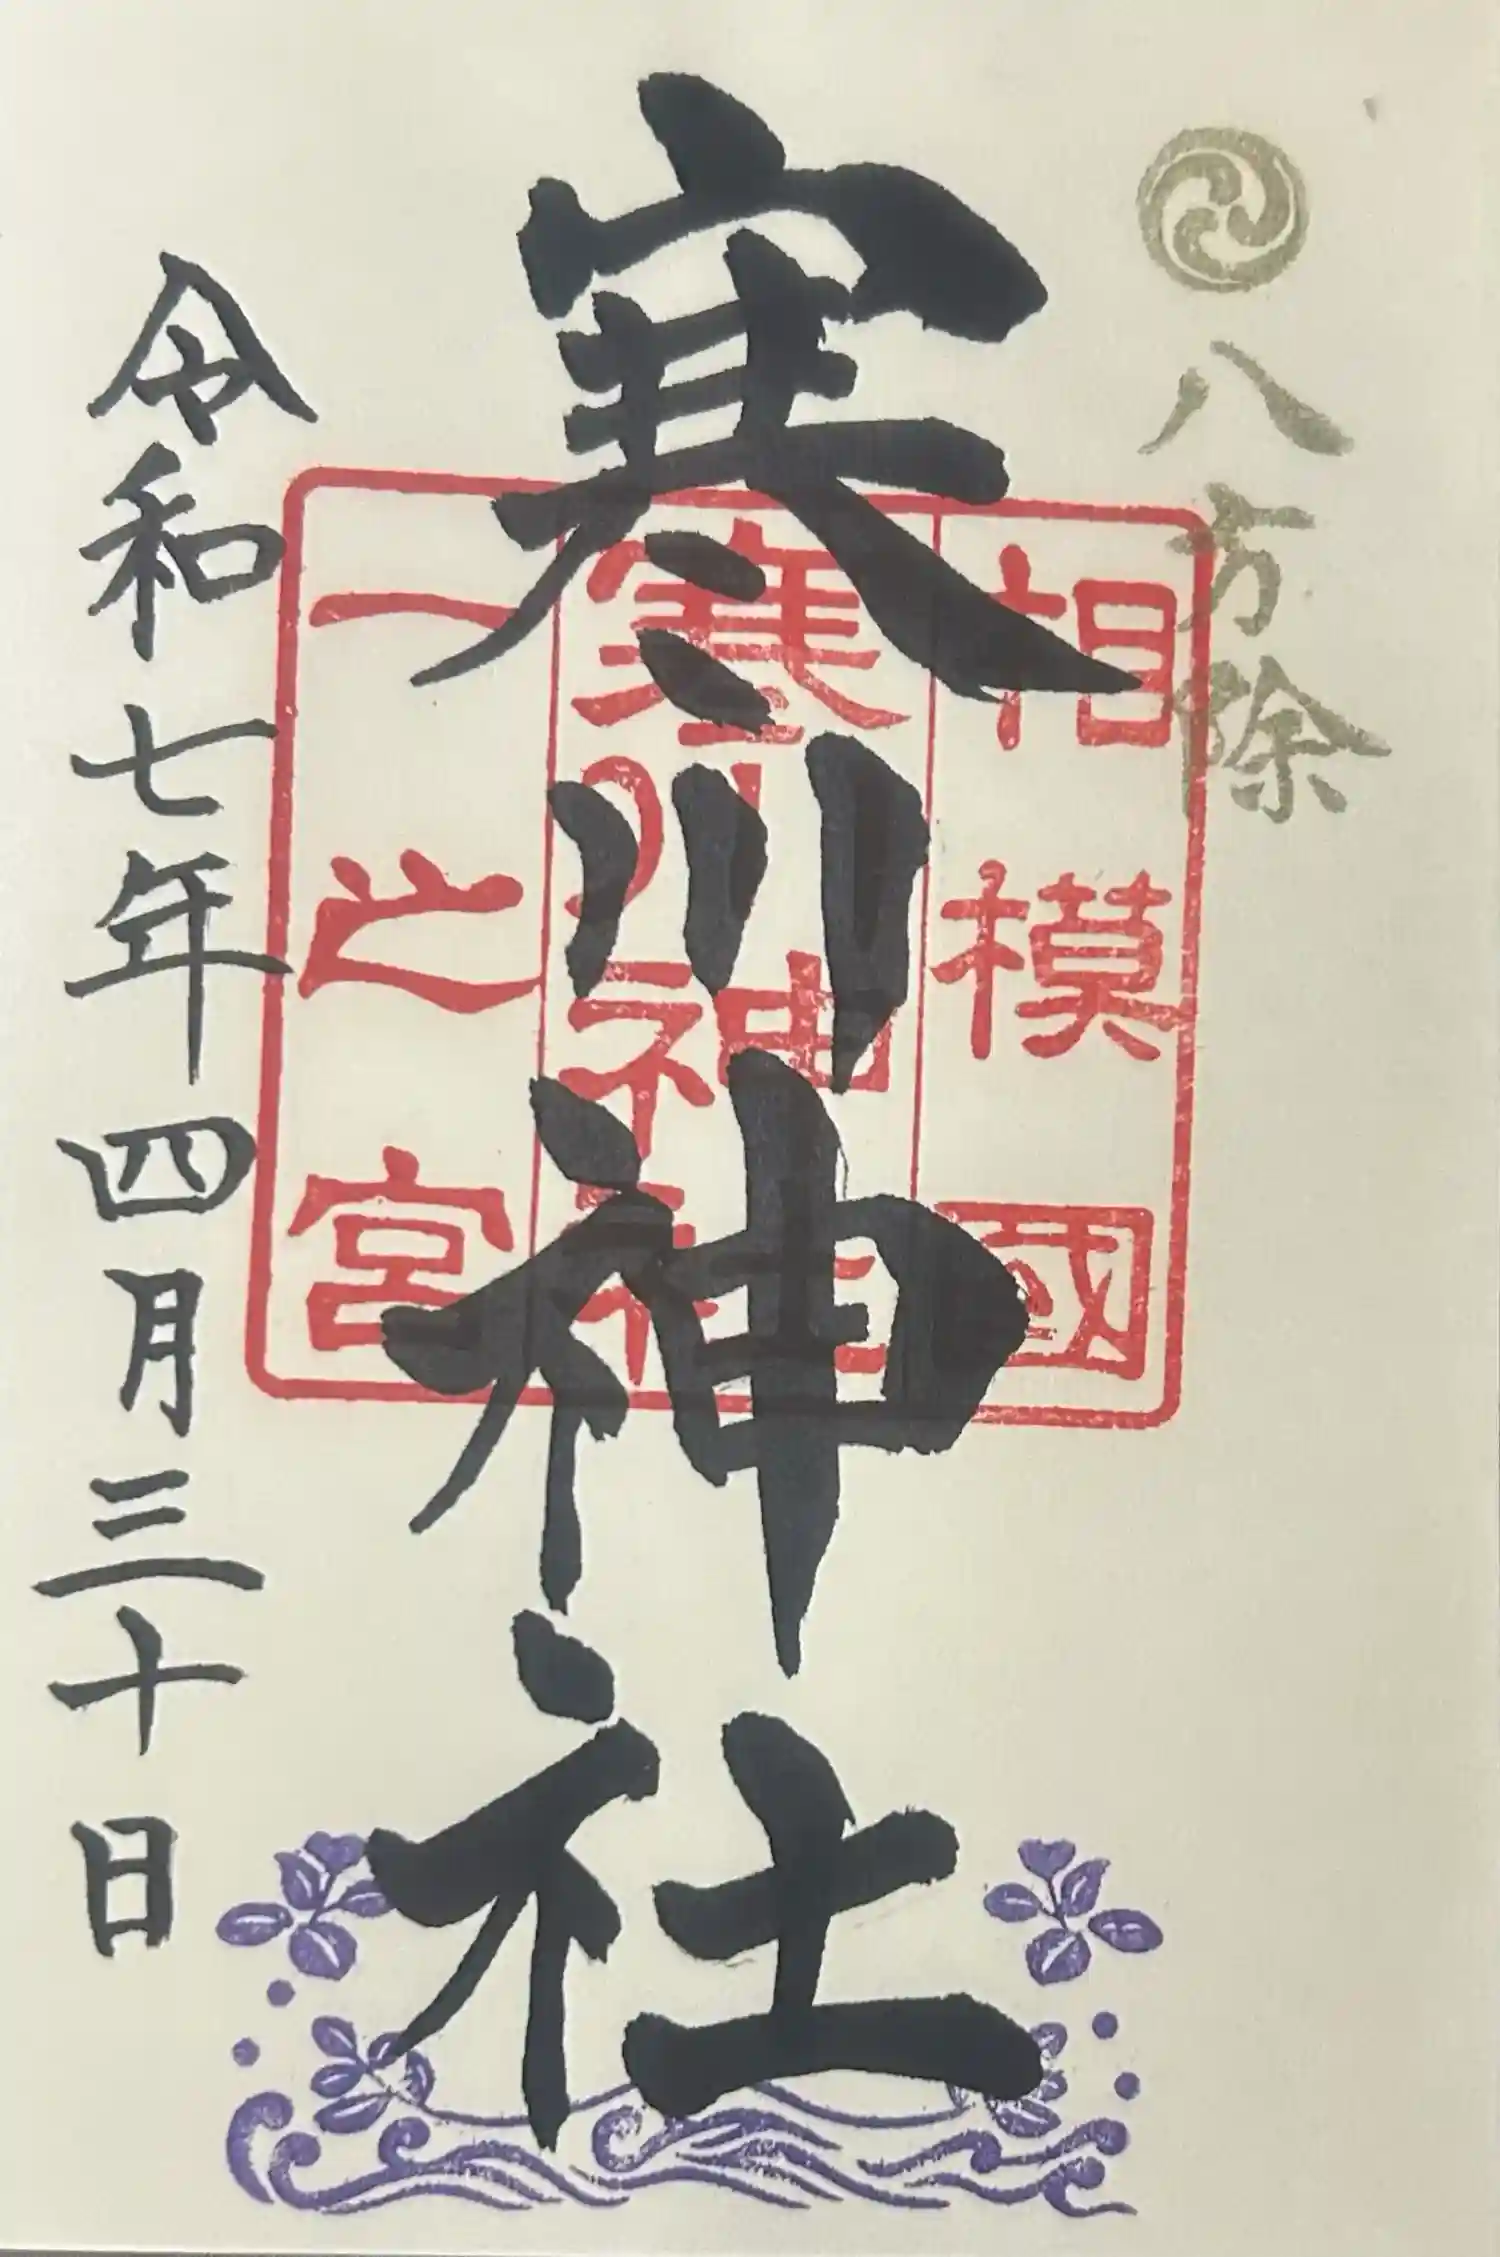 八方除
寒川神社
相模國
寒川神社
一之宮
令和七年四月三十日